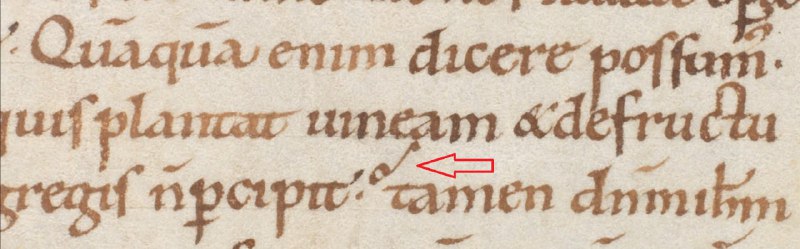 Quāquā enim dicere possum̄.
quis plantat uineam & defructu
gregis n̄ ꝑcipit. tamen dn̄m ihm̄